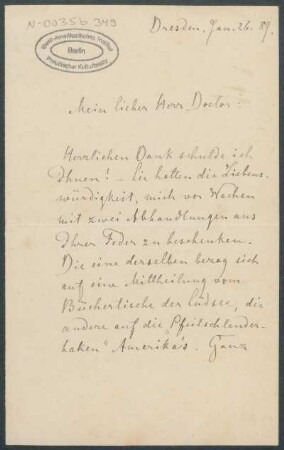 N-0035 b 349
Ibero-Amerikanisches Institut
Berlin
Preußischer Kulturbesitz
Dresden. Jan. 26. 89.
Mein lieber Herr Doctor:
Herzlichen Dank schulde ich
Ihnen! – Sie hatten die Liebens-
würdigkeit, mich vor Wochen
mit zwei Abhandlungen aus
Ihrer Feder zu beschenken.
Die eine derselben bezog sich
auf eine Mittheilung vom
Büchertische der Südsee, die
andere auf die "Pfeilschleuder-
haken" Amerika's. Ganz